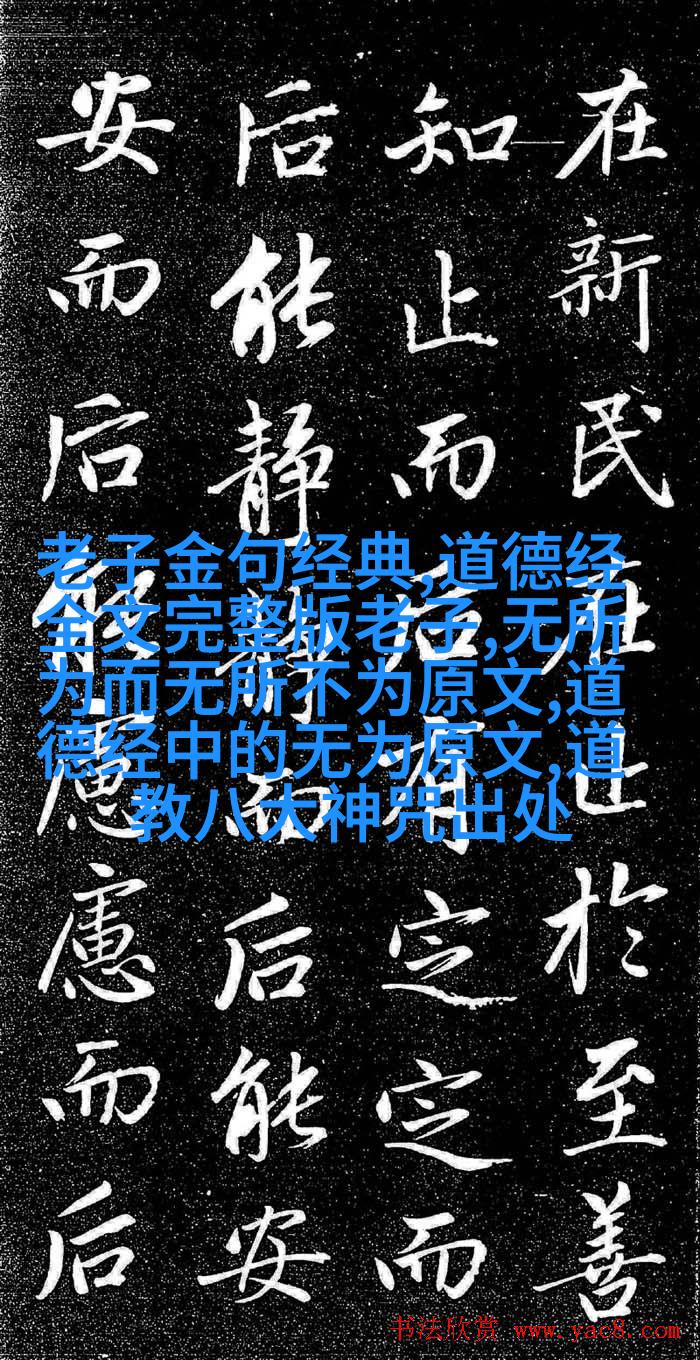 在新民在止於至善
知止而后有定定而
后能静静而后能安
安而后能慮慮而后
老子金句经典,道德经
全文完整版老子,无所
为而无所不为原文,道
德经中的无为原文,道
教八大神咒出处
书法欣赏 www.yac8.com